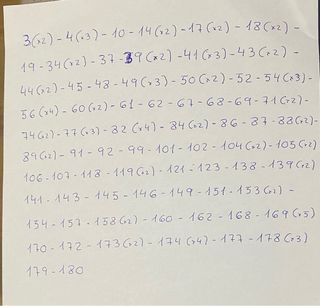 3(x2) - 4(x3) - 10 - 14(x2) - 17(x2) - 18(x2) -
19 - 34(x2) - 37 - 39(x2) - 41(x3) - 43(x2) -
44(x2) - 45 - 48 - 49(x3) - 50(x2) - 52 - 54(x3) -
56(x4) - 60(x2) - 61 - 62 - 67 - 68 - 69 - 71(x2) -
74(x2) - 77(x3) - 82(x4) - 84(x2) - 86 - 87 - 88(x2) -
89(x2) - 91 - 92 - 99 - 101 - 102 - 104(x2) - 105(x2)
106 - 107 - 118 - 119(x2) - 121 - 123 - 138 - 139(x2)
141 - 143 - 145 - 146 - 149 - 151 - 153(x2) -
154 - 157 - 158(x2) - 160 - 162 - 168 - 169(x5)
170 - 172 - 173(x2) - 174(x4) - 177 - 178(x3)
179 - 180